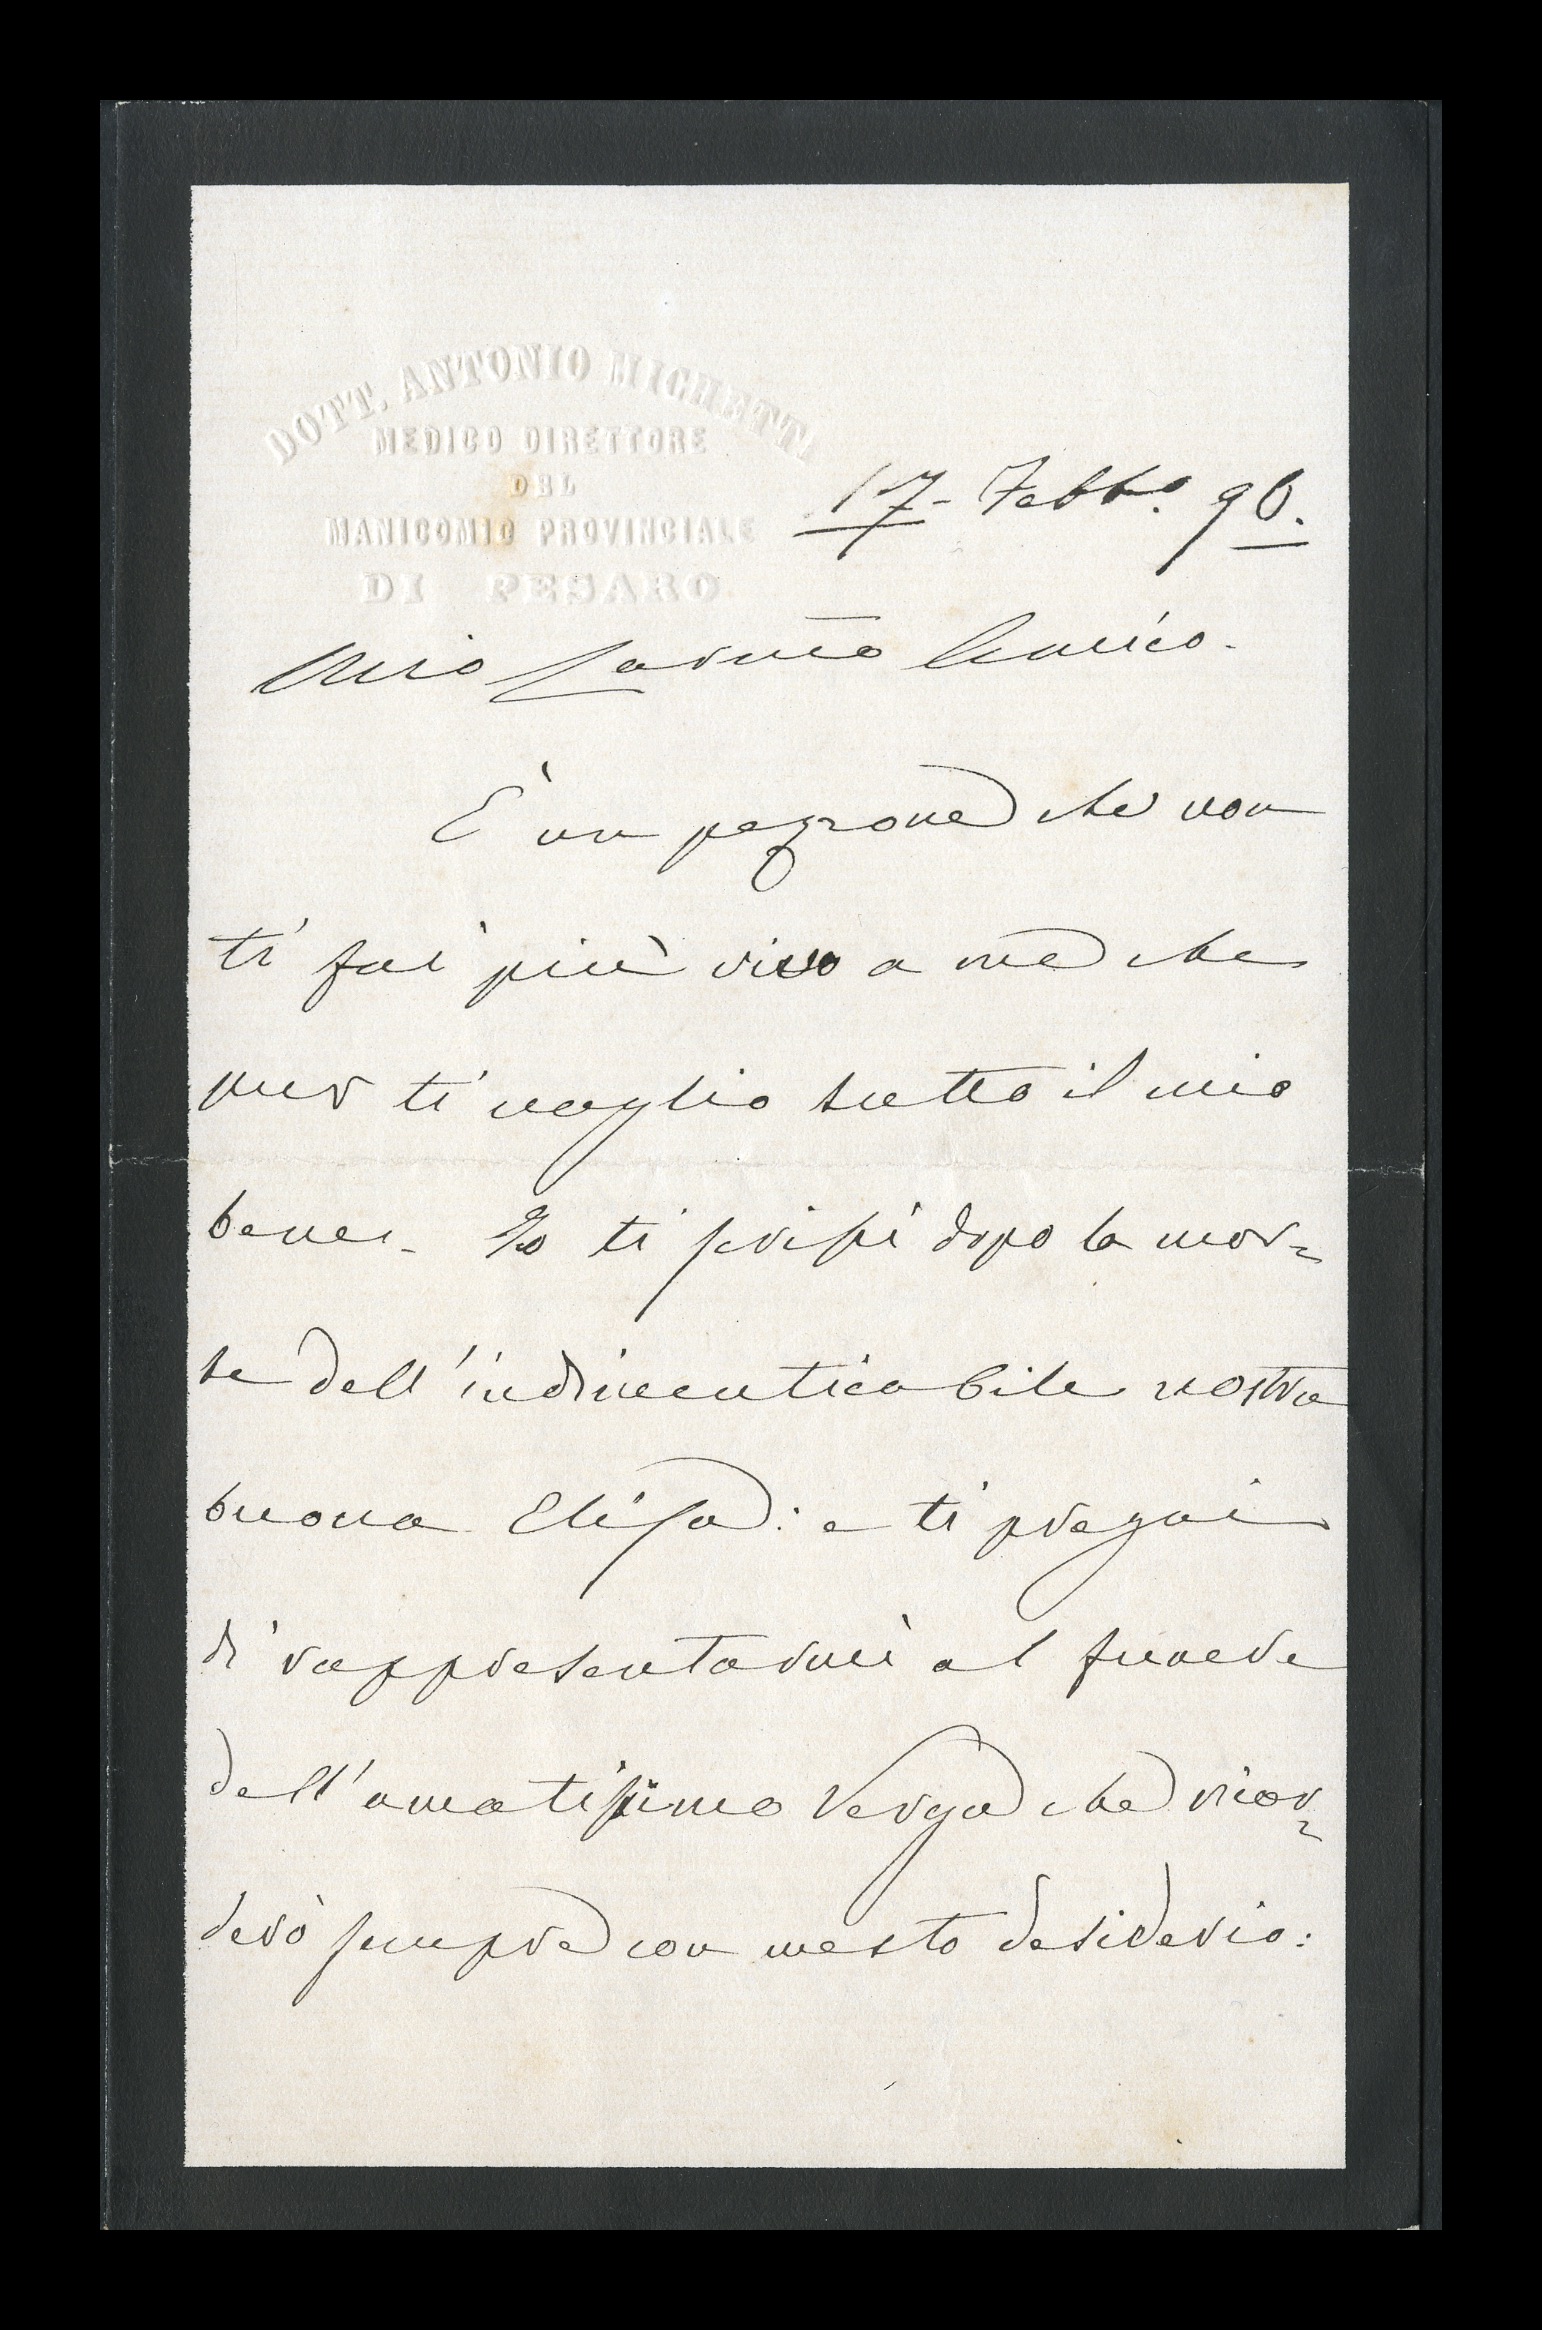 DOTT. ANTONIO MICHETTI
MEDICO DIRETTORE
DEL
MANICOMIO PROVINCIALE
DI PESARO
17 - Febb.º 96.
Mio Carmo Amico.
È un pezzone che non
ti fai più vivo a me che
pur ti voglio tutto il mio
bene. Io ti scrissi dopo la mor=
te dell'indimenticabile nostra
buona Elisa: e ti pregai
di rappresentarmi al funere
dell'amatissimo Verga che ricor=
derò sempre con mesto desiderio: